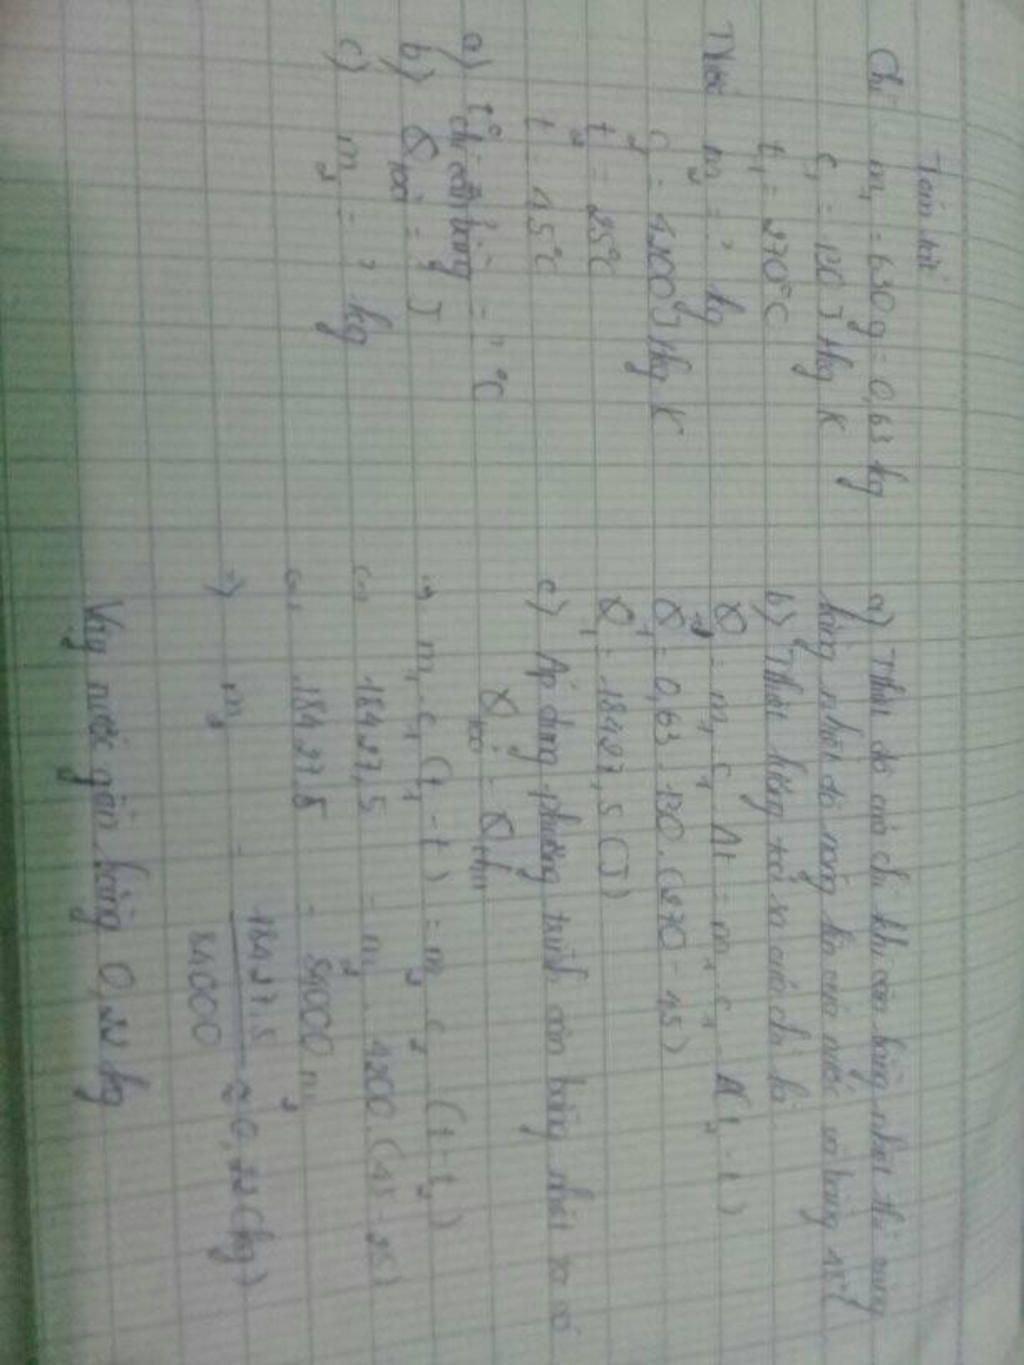 Tóm tắt
Chì m₁ = 630g = 0,63 kg
c₁ = 130 J/kg K
t₁ = 270°C
Nước m₂ = ? kg
c₂ = 4200 J/kg K
t₂ = 25°C
t = 45°C
a) t° chì cân bằng = ? °C
b) Q = ? J
c) m₂ = ? kg
a) Nhiệt độ của chì khi cân bằng nhiệt thì cũng
bằng nhiệt độ nóng lên của nước và bằng 45°C
b) Nhiệt lượng toả ra của chì là
Q₁ = m₁ . c₁ . Δt = m₁ . c₁ . - t)
Q₁ = 0,63 . 130 . (270 - 45)
Q₁ = 18427,5 (J)
c) Áp dụng phương trình cân bằng nhiệt ta có
Q = Q thu
m₁ . c₁ (t₁ - t) = m₂ c₂ (t - t₂)
18427,5 = m₂ . 4200 . (45 - 25)
18427,5 = 84000 m₂
=) m₂ = 18427,5 / 84000 ≈ 0,22 (kg)
Vậy nước gần bằng 0,22 kg